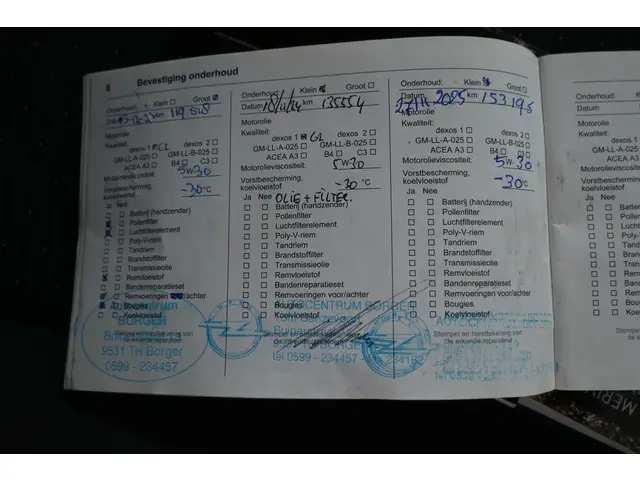 8
Bevestiging onderhoud
Onderhoud: Klein Groot
Datum km 119 518
Motorolie
Kwaliteit: dexos 2
GM-LL-A-025 GM-LL-B-025
ACEA A3 B4 C3
Motorolieviscositeit: 5W30
Vorstbescherming koelvloeistof -30°C
Ja Nee
Batterij (handzender)
Pollenfilter
Luchtfilterelement
Poly-V-riem
Tandriem
Brandstoffilter
Transmissieolie
Remvloeistof
Bandenreparatieset
Remvoeringen voor/achter
Bougies
Koelvloeistof
Stempel en handtekening van
de erkende reparateur
BORGER
9531 TH Borger
0599 - 234457
Onderhoud: Klein Groot
Datum km 135554
Motorolie
Kwaliteit:
dexos 1 G2 dexos 2
GM-LL-A-025 GM-LL-B-025
ACEA A3 B4 C3
Motorolieviscositeit:
5W30
Vorstbescherming
koelvloeistof -30 °C
Ja Nee OLIE + FILTER.
Batterij (handzender)
Pollenfilter
Luchtfilterelement
Poly-V-riem
Tandriem
Brandstoffilter
Transmissieolie
Remvloeistof
Bandenreparatieset
Remvoeringen voor/achter
Bougies
Koelvloeistof
AUTOCENTRUM BORGER
Stempel en handtekening van
de erkende reparateur
tel 0599 - 234457
Onderhoud: Klein Groot
Datum 27/11-2025 km 153198
Motorolie
Kwaliteit:
dexos 1 dexos 2
GM-LL-A-025 GM-LL-B-025
ACEA A3 B4 C3
Motorolieviscositeit: 5W-30
Vorstbescherming
koelvloeistof -30°C
Ja Nee
Batterij (handzender)
Pollenfilter
Luchtfilterelement
Poly-V-riem
Tandriem
Brandstoffilter
Transmissieolie
Remvloeistof
Bandenreparatieset
Remvoeringen voor/achter
Bougies
Koelvloeistof
Stempel en handtekening van
de erkende reparateur
Onderhoud:
Datum
Motorolie
Kwaliteit:
GM-LL-A
ACEA
Motorolievi
Vorstbesche
koelvloeistof
Ja Nee